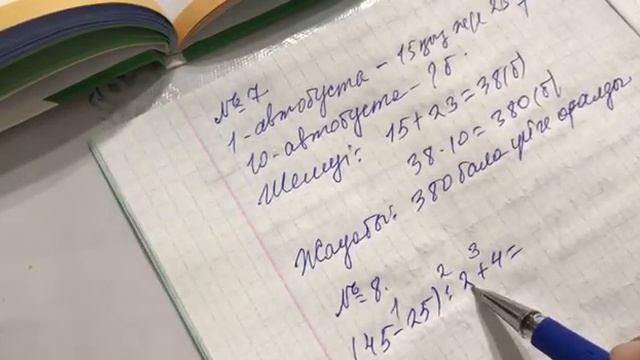 № 7
1-автобуста - 15 қыз және 23
10-автобуста - ? б.
Шешуі: 15+23=38(б)
38·10=380(б)
Жауабы: 380 бала үйге оралды.
№ 8.
1 2 3
(45-25):2+4=